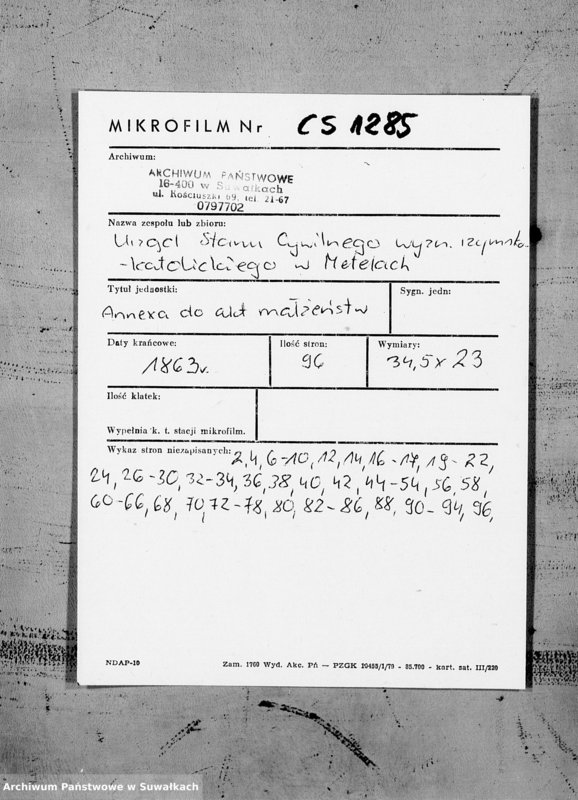 MIKROFILM Nr CS 1285
Archiwum:
ARCHIWUM PAŃSTWOWE
16-400 w Suwałkach
ul. Kościuszki 69, tel. 21-67
0797702
Nazwa zespołu lub zbioru:
Urząd Stanu Cywilnego wyzn. rzymsko-
-katolickiego w Metelach
Tytuł jednostki:
Sygn. jedn:
Annexa do akt małżeństw
Daty krańcowe:
Ilość stron:
Wymiary:
1863r.
96
34,5 x 23
Ilość klatek:
Wypełnia k. t. stacji mikrofilm.
Wykaz stron niezapisanych: 2, 4, 6-10, 12, 14, 16-17, 19-22,
24, 26-30, 32-34, 36, 38, 40, 42, 44-54, 56, 58,
60-66, 68, 70, 72-78, 80, 82-86, 88, 90-94, 96,
NDAP-10
Zam. 1760 Wyd. Akc. Pń — PZGK 10455/I/79 - 85.700 - kart. sat. III/220
Archiwum Państwowe w Suwałkach